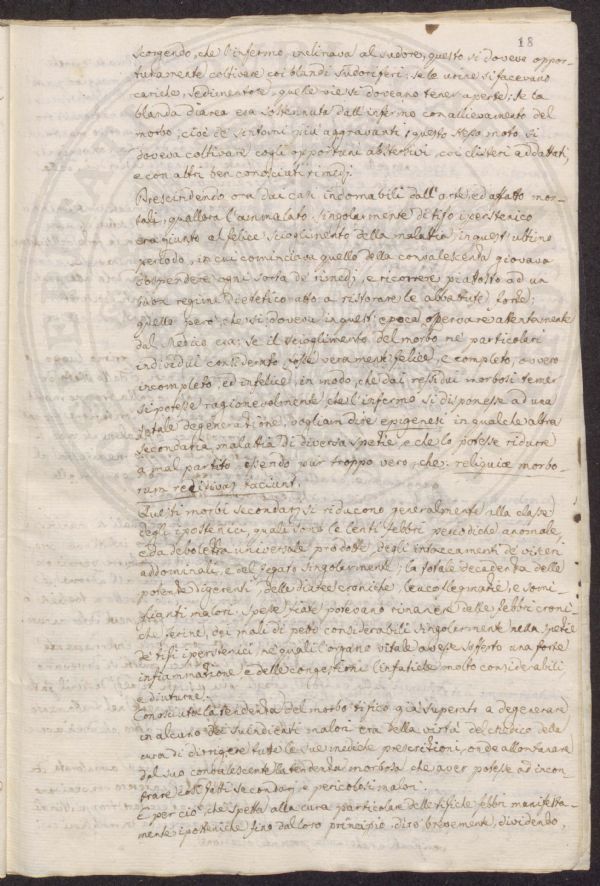 18
scorgendo, che l'infermo, inclinava al sudore, questo si doveva oppor-
tunamente coltivare coi blandi sudoriferi; se le urine si facevano
cariche, sedimentose, quelle vie si doveano tener aperte; se la
blanda diarea era sostennuta dall'infermo con allievamento del
morbo, cioè de' sintomi più aggravanti, questo stesso moto si
doveva coltivare cogli opportuni abstersivi, coi clisteri addattati,
e con altri ben conosciuti rimedj.
Prescindendo ora dai casi incornabili dall'arte, ed affatto mor-
tali, qualora l'ammalato singolarmente di tifo iperstenico
era giunto al felice scioglimento della malattia, in quest'ultimo
periodo, in cui cominciava quello della convalescenza giovava
sospendere ogni sorta de' rimedj, e ricorrere piutosto ad un
buon regime dietetico atto a ristorare le abbatute forze;
quello però, che si doveva in questi epoca operare attentamente
dal Medico era: se il scioglimento del morbo ne' particolari
individui considerato, fosse veramente felice, e completo, ovvero
incompleto, ed infelice, in modo, che dai residui morbosi temer
si potesse ragionevolmente, che l'infermo si disponesse ad una
totale degenerazione, vogliam dire epigenesi in qualche altra
secondaria malattia di diversa spetie, e che lo potesse ridurre
a mal partito, essendo pur troppo vero, che: reliquiæ morbo-
rum recidivas faciunt.
Questi morbi secondarj si riducono generalmente alla classe
degli ipostenici, quali sono le lenti febbri periodiche anomale
da debolezza universale prodotte, degli intaccamenti de' visceri
addominali, e del fegato singolarmente; la totale decadenza delle
potenze digerenti, delle diatesi croniche leucoflegmatie, e somi-
glianti malori, spesse fiate potevano rimanere delle febbri croni-
che serine, coi mali di petto considerabili singolarmente nella spetie
de' tifi iperstenici, ne' quali l'organo vitale avesse sofferto una forte
infiammazione, e delle congestioni linfatiche molto considerabili
e diuturne.
Conosciuta la tendenza del morbo tifico già superato a degenerare
in alcuno dei suindicati malori era della virtù del Medico della
cura di dirigere tutte le sue mediche prescrizioni, onde allontanare
dal suo convalescente la tendenza morbosa che aver potesse ad incon-
trare cosi fatti secondarj e pericolosi malori.
E per ciò, che spetta alla cura particolare delle tifiche febbri manifesta-
mente iposteniche fino dal loro principio dirò brevemente, dividendo,